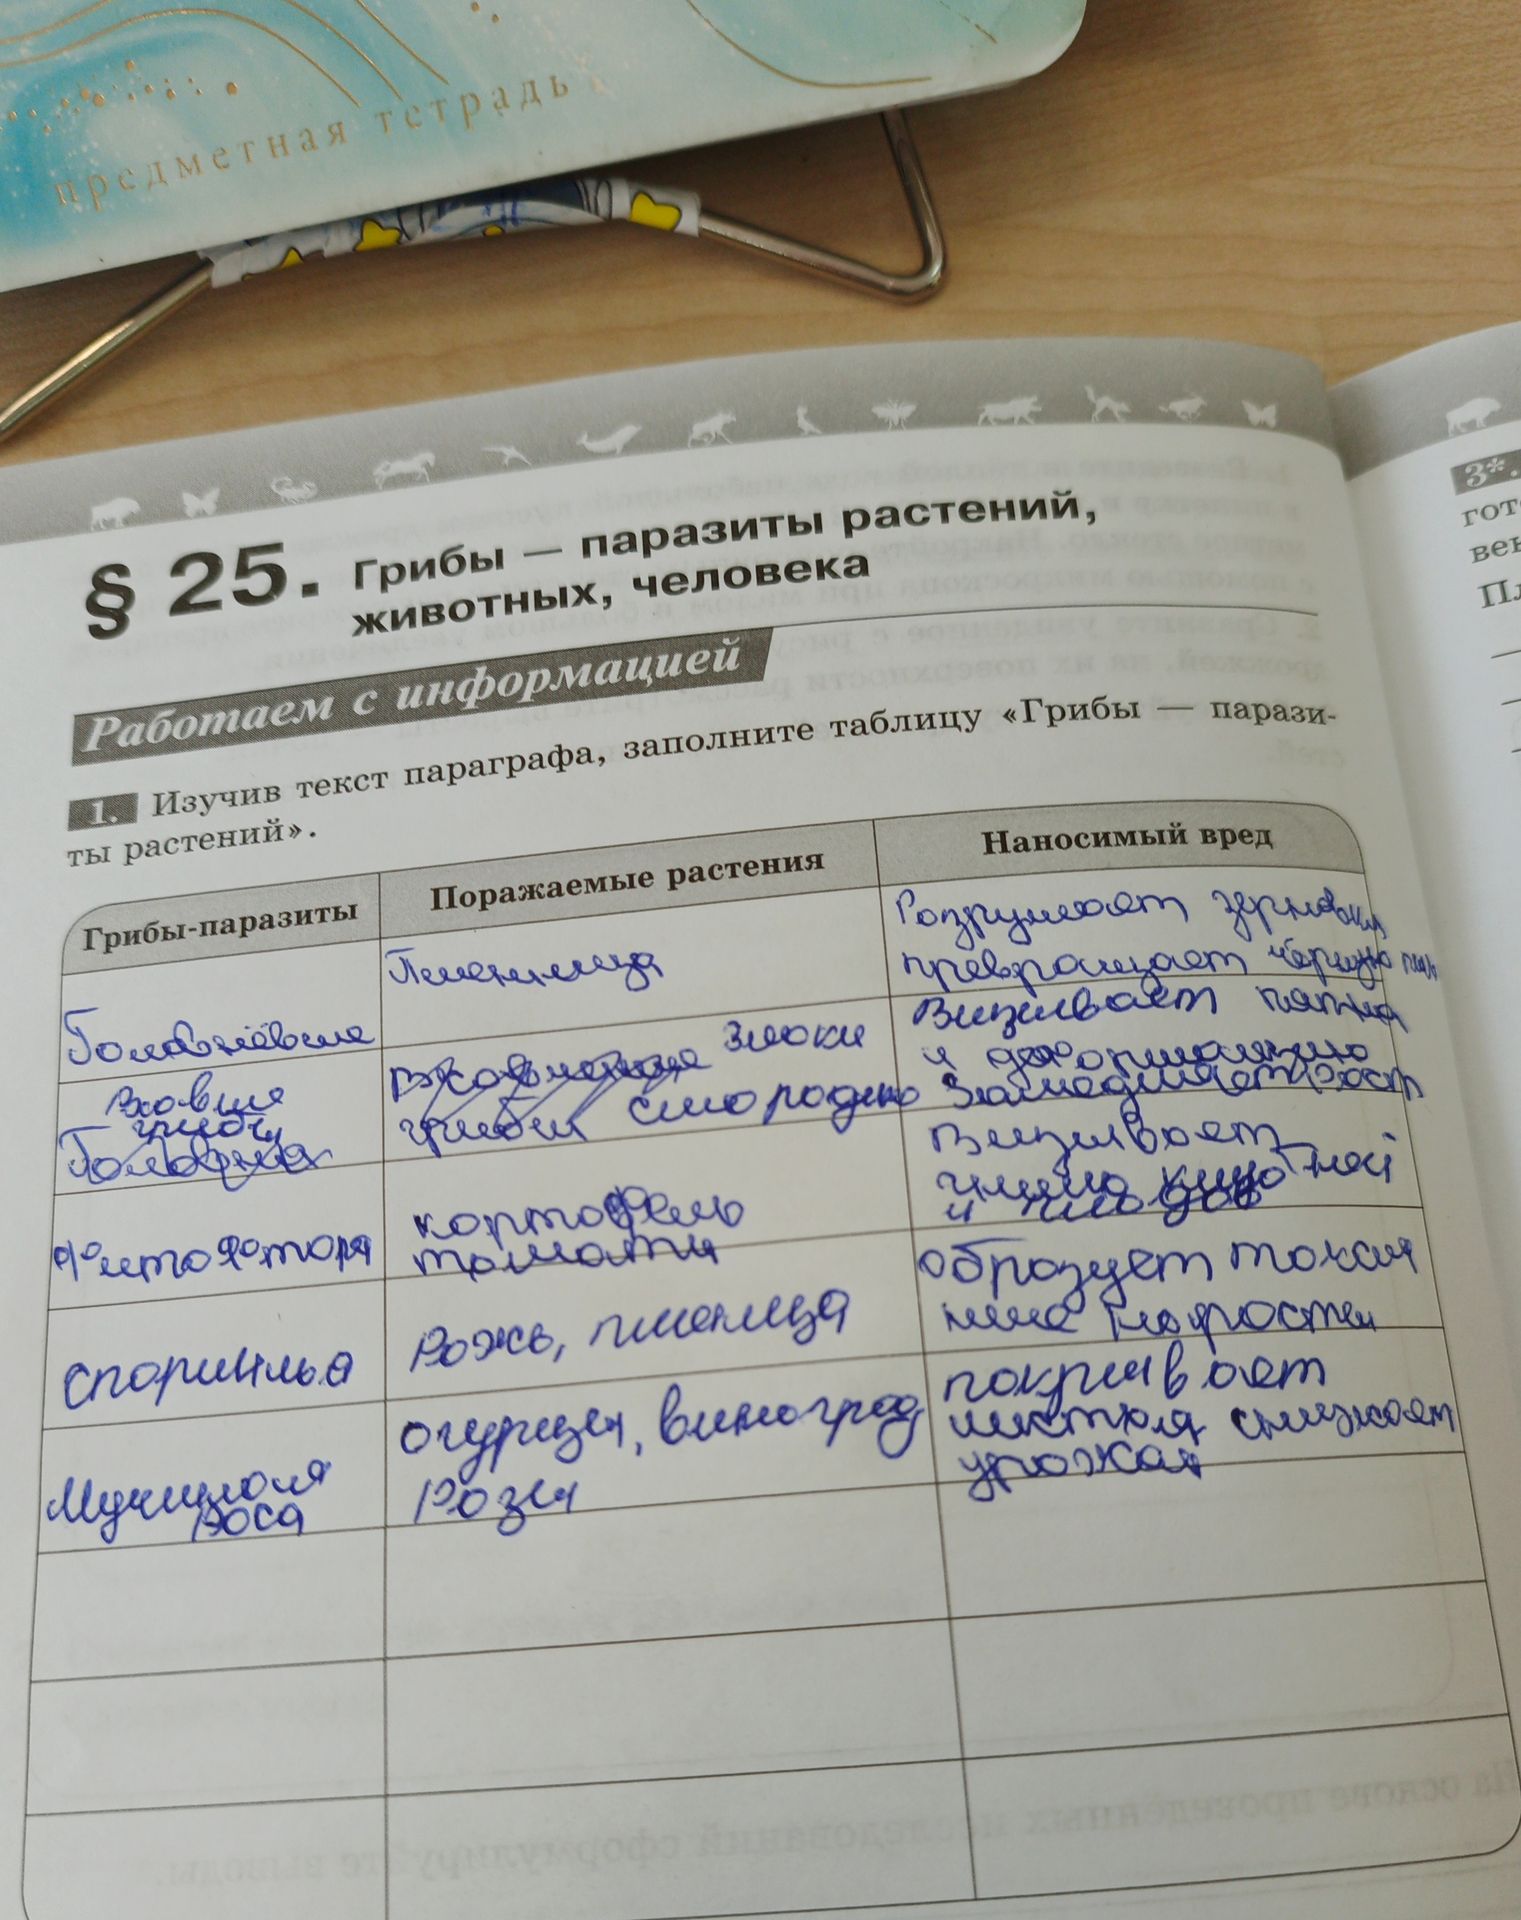 предметная тетрадь
§ 25. Грибы — паразиты растений,
животных, человека
3*.
гот
вен
Пл
Работаем с информацией
1. Изучив текст параграфа, заполните таблицу «Грибы — парази-
ты растений».
Грибы-паразиты
Поражаемые растения
Наносимый вред
Головнёвые
Пшеница
Разрушает зерновки
превращает чёрную
грибы
Головня
злаки
грибы смородина
Вызывает пятна
и
Замедляет рост
Фитофтора
картофель
томаты
Вызывает
и плодов
спорынья
Рожь, пшеница
образует токси
ные наросты
Мучнистая
роса
огурцы, виноград
Розы
покрывает
листья снижает
урожая